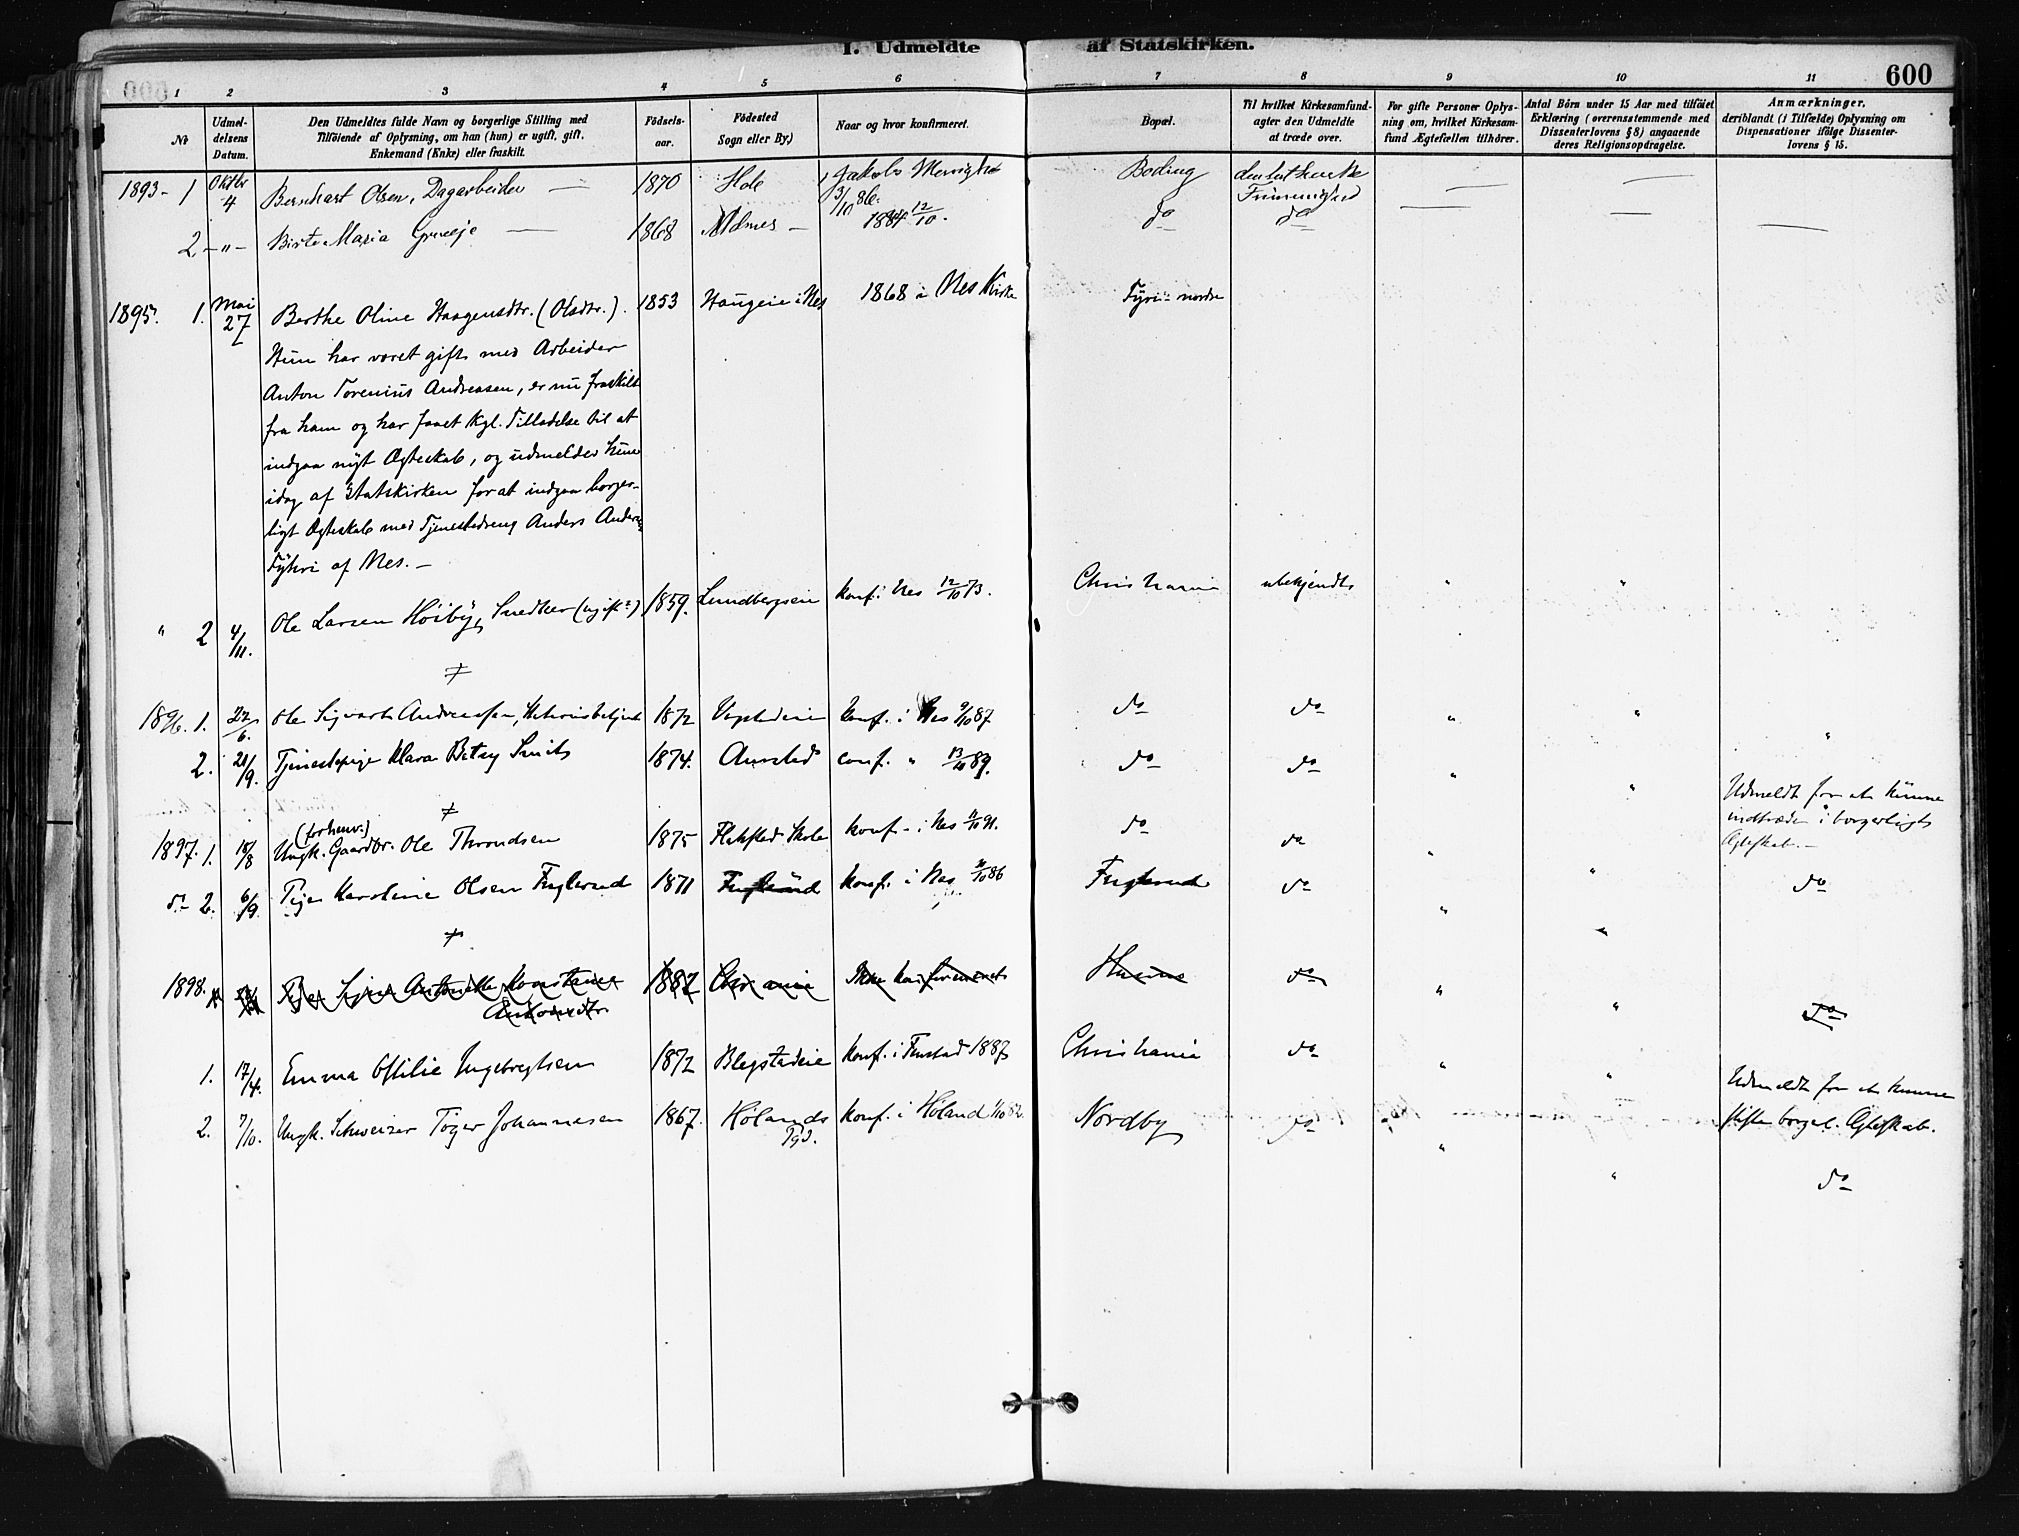 I. Udmeldte af Statskirken.
600
1 2 3 4 5 6 7 8 9 10 11
№
Udmeldelsens Datum.
Den Udmeldtes fulde Navn og borgerlige Stilling med
Tilföiende af Oplysning, om han (hun) er ugift, gift.
Enkemand (Enke) eller fraskilt.
Födselsaar.
Födested
Sogn eller By,)
Naar og hvor konfirmeret.
Bopæl.
Til hvilket Kirkesamfund-
agter den Udmeldte
at træde over.
For gifte Personer Oplys-
ning om, hvilket Kirkesam-
fund Ægtefællen tilhörer.
Antal Börn under 15 Aar med tilföiet
Erklæring (overensstemmende med
Dissenterlovens § 8) angaaende
deres Religionsopdragelse.
Anmærkninger,
deriblandt (i Tilfælde) Oplysning om
Dispensationer ifölge Dissenter-
lovens § 15.
1893 - 1 Oktbr 4 Bernhart Olsen, Dagarbeider — 1870 Hole Jakobs Menighed 3/10 86. Boding den luth. — —
2 - " - Birte Maria 1868 1884 12/10. do do — — —
1895. 1. Mai 27 Berthe Oline Haagensdtr. (Olsdtr.). 1853 Haugeie i Nes 1868 i Nes Kirke Fyri nordre
Hun har været gift med Arbeider
Anton Torenius Andreasen, er nu fraskilt
fra ham og har faaet Kgl. Tilladelse til at
indgaa nyt Ægteskab, og udmelder hun
idag af Statskirken for at indgaa borger-
ligt Ægteskab med Tjenestedreng Anders Anders.
Fyhri af Nes. —
" 2 4/11. Ole Larsen Höiby, Snedker (ugift) 1859. Lundbergseie konf. i Nes 12/10 73. Christiania ubekjendt " "
1896. 1. 22/6. Ole Sigvart Andreassen, 1872 konf. i Nes 9/10 87. do do " " "
2. 21/9. Tjenestepige Klara Betsy Smits 1874. Aurstad conf. " 13/10 89. do do " " Udmeldt for at kunne
indtræde i borgerligt
Ægteskab. —
1897. 1. 18/8 (forhenv.) Ungk. Gaardbr. Ole Throndsen 1875 Skole konf. i Nes 11/10 91. do do " " do
do 2. 6/9. Pige Karoline Olsen Fuglerud 1871 Fuglerud konf. i Nes 10/10 86 Fuglerud do " "
1898. Pige Signe Antonette Konstance
Antonsdtr. 1882 Christiania Ikke konfirmeret Huseie do " " do
1. 17/4. Emma Otilie Ingebregtsen 1872 Blegstadeie konf. i Funstad 1887 Christiania do " " Udmeldt for at kunne
stifte borgel. Ægteskab.
2. 7/10. Ungk. Schweizer Töger Johannesen 1867. Hölands Pgd. konf. i Höland 1/10 82. Nordby do " " do